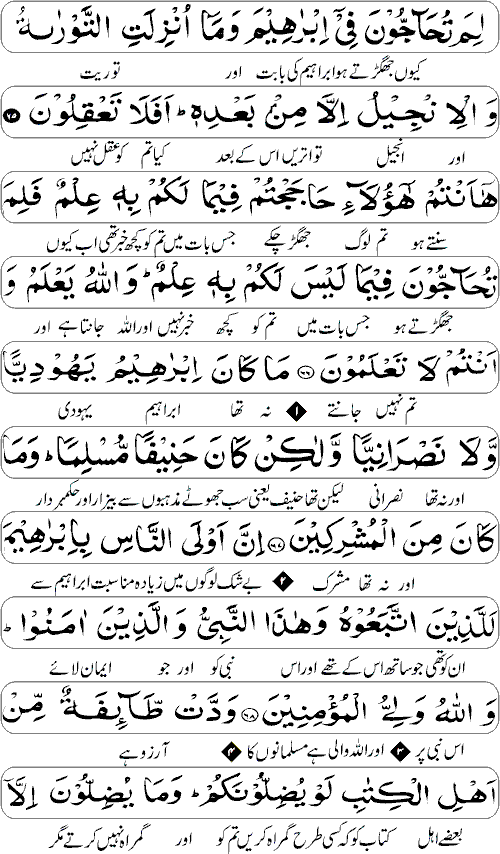 لِمَ تُحَآجُّوْنَ فِیْۤ اِبْرٰهِیْمَ وَمَاۤ اُنْزِلَتِ التَّوْرٰىةُ
کیوں جھگڑتے ہو ابراہیم کی بابت اور توریت
وَ الْاِنْجِیْلُ اِلَّا مِنْۢ بَعْدِهٖ ؕ اَفَلَا تَعْقِلُوْنَ ﴿۶۵﴾
اور انجیل تو اتریں اس کے بعد کیا تم کو عقل نہیں
هٰۤاَنْتُمْ هٰۤؤُلَآءِ حَاجَجْتُمْ فِیْمَا لَكُمْ بِهٖ عِلْمٌ فَلِمَ
سنتے ہو تم لوگ جھگڑ چکے جس بات میں تم کو کچھ خبر تھی اب کیوں
تُحَآجُّوْنَ فِیْمَا لَیْسَ لَكُمْ بِهٖ عِلْمٌ ؕ وَ اللّٰهُ یَعْلَمُ وَ
جھگڑتے ہو جس بات میں تم کو کچھ خبر نہیں اور اللہ جانتا ہے اور
اَنْتُمْ لَا تَعْلَمُوْنَ ﴿۶۶﴾ مَا كَانَ اِبْرٰهِیْمُ یَهُوْدِیًّا
تم نہیں جانتے ۱ نہ تھا ابراہیم یہودی
وَّلَا نَصْرَانِیًّا وَّلٰكِنْ كَانَ حَنِیْفًا مُّسْلِمًا ؕ وَمَا
اور نہ تھا نصرانی لیکن تھا حنیف یعنی سب جھوٹے مذہبوں سے بیزار اور حکمبردار
كَانَ مِنَ الْمُشْرِكِیْنَ ﴿۶۷﴾ اِنَّ اَوْلَی النَّاسِ بِاِبْرٰهِیْمَ
اور نہ تھا مشرک ۲ بے شک لوگوں میں زیادہ مناسبت ابراہیم سے
لَلَّذِیْنَ اتَّبَعُوْهُ وَهٰذَا النَّبِیُّ وَالَّذِیْنَ اٰمَنُوْا ؕ
ان کو تھی جو ساتھ اس کے تھے اور اس نبی کو اور جو ایمان لائے
وَ اللّٰهُ وَلِیُّ الْمُؤْمِنِیْنَ ﴿۶۸﴾ وَدَّتْ طَّآىِٕفَةٌ مِّنْ
اس نبی پر ۳ اور اللہ والی ہے مسلمانوں کا ۴ آرزو ہے
اَهْلِ الْكِتٰبِ لَوْ یُضِلُّوْنَكُمْ ؕ وَمَا یُضِلُّوْنَ اِلَّاۤ
بعضے اہل کتاب کو کہ کسی طرح گمراہ کریں تم کو اور گمراہ نہیں کرتے مگر